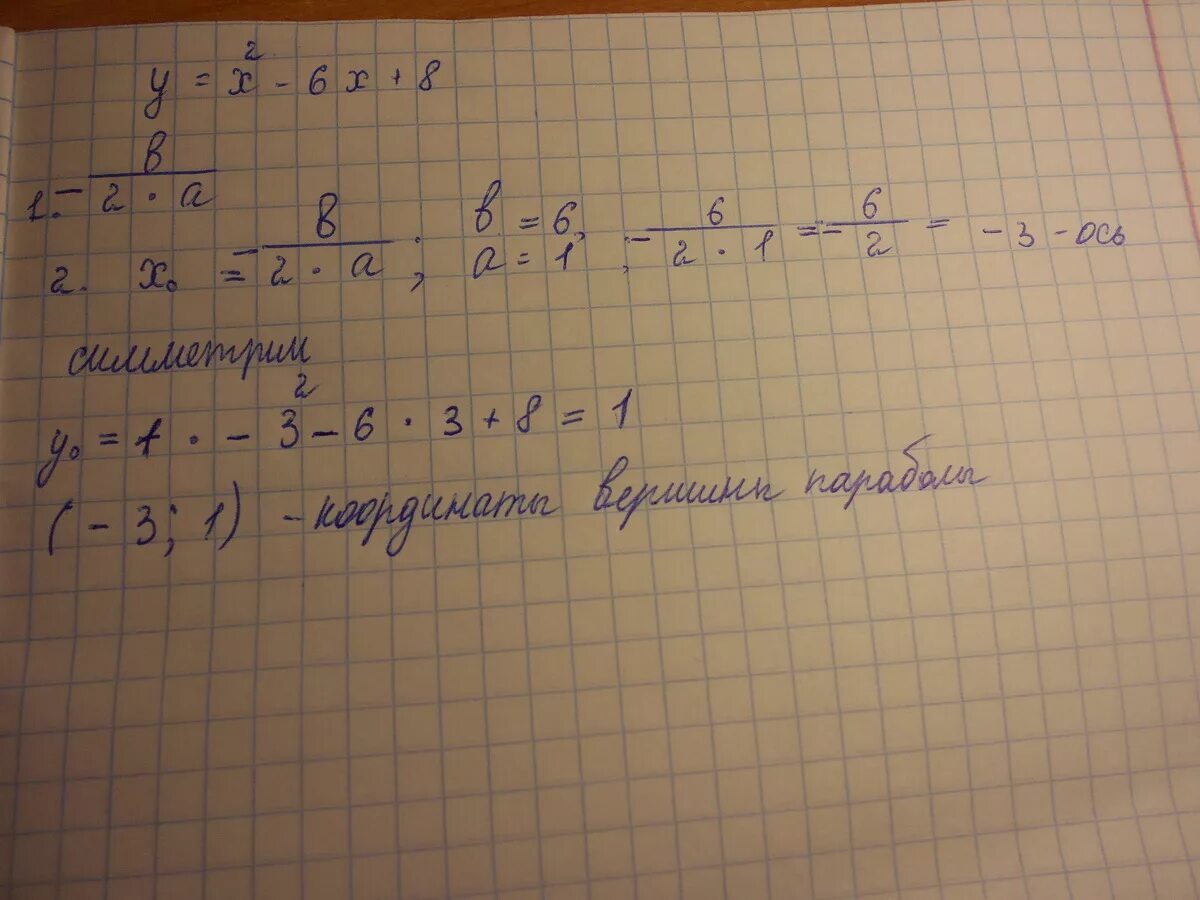 y = x² - 6x + 8
1. - в / 2 · а
2. x₀ = - в / 2 · а ; в = 6, а = 1 ; - 6 / 2 · 1 = - 6 / 2 = - 3 - ось
симметрии
y₀ = 1 · - 3² - 6 · 3 + 8 = 1
(- 3; 1) - координаты вершины параболы